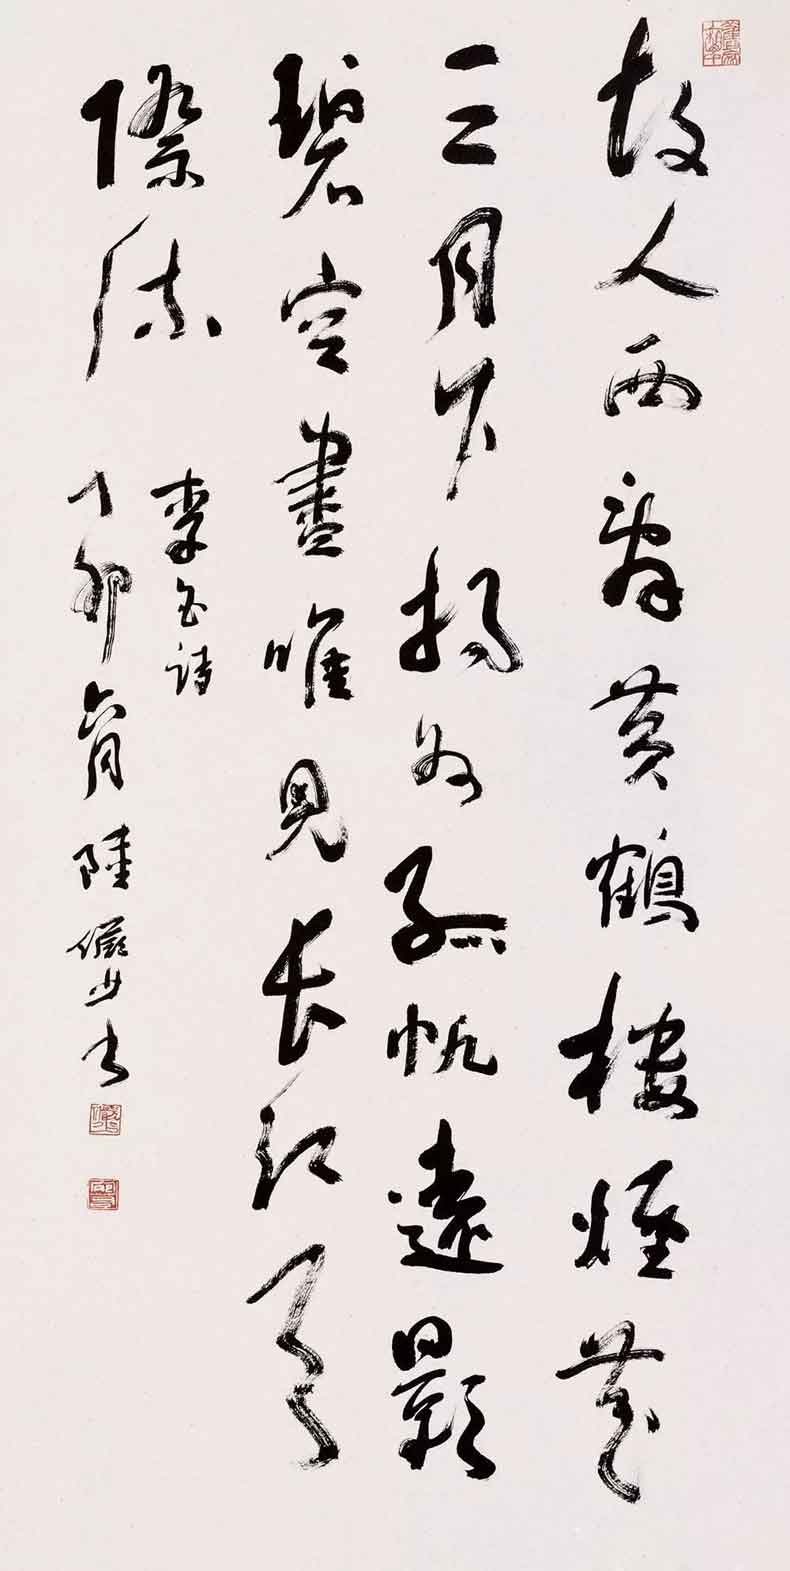 故人西辭黃鶴樓煙花
三月下揚州孤帆遠影
碧空盡唯見長江天
際流
李白詩
丁卯六月陸儼少書